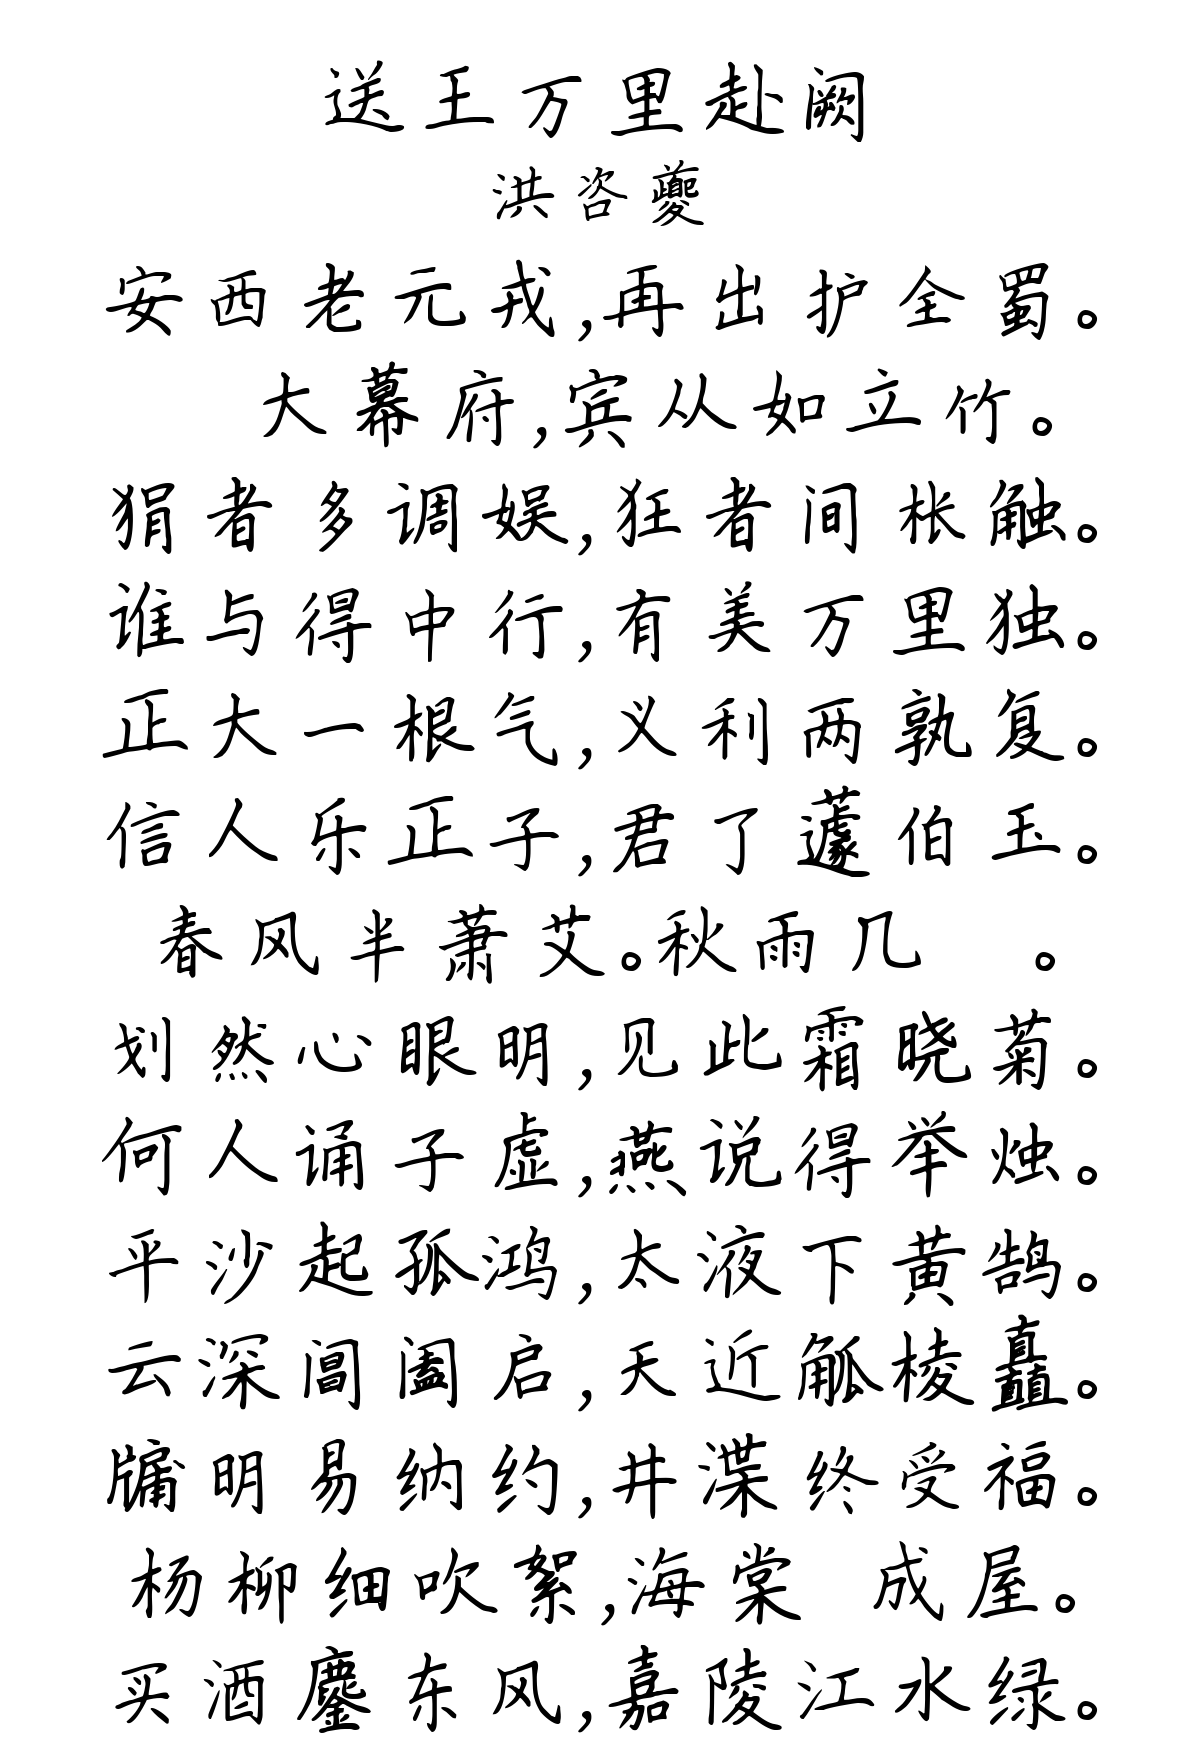 送王万里赴阙
洪咨夔
安西老元戎,再出护全蜀。
大幕府,宾从如立竹。
狷者多调娱,狂者间枨触。
谁与得中行,有美万里独。
正大一根气,义利两孰复。
信人乐正子,君了蘧伯玉。
春风半萧艾。秋雨几 。
划然心眼明,见此霜晓菊。
何人诵子虚,燕说得举烛。
平沙起孤鸿,太液下黄鹄。
云深阊阖启,天近觚棱矗。
牖明易纳约,井渫终受福。
杨柳细吹絮,海棠 成屋。
买酒鏖东风,嘉陵江水绿。